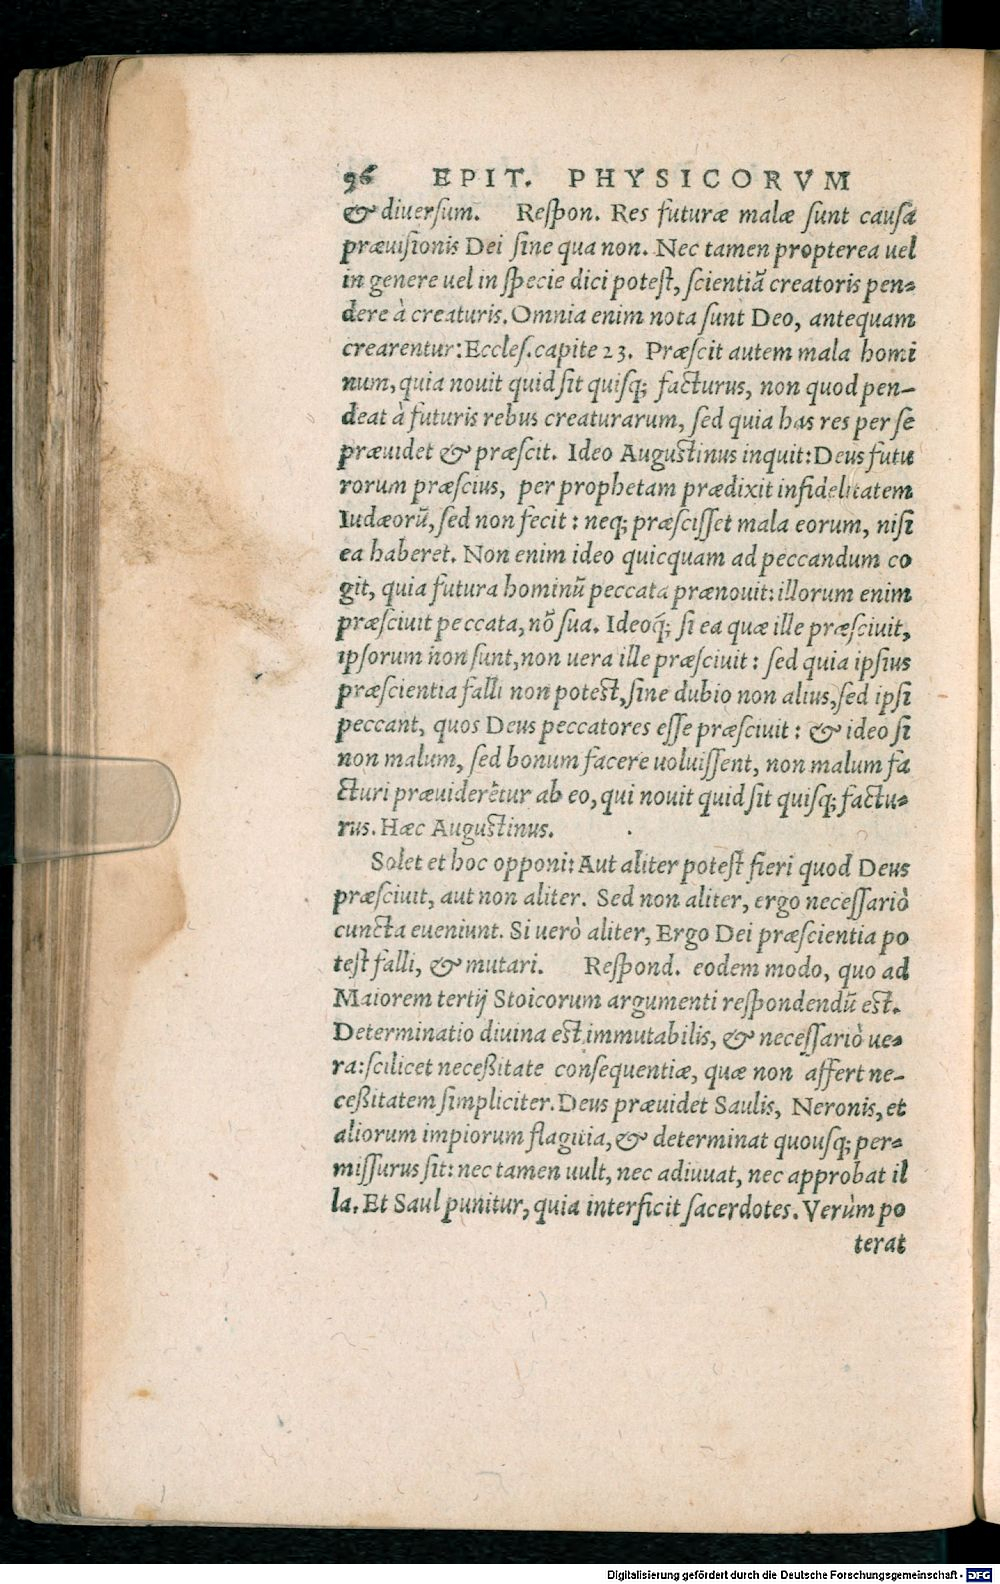 96 EPIT. PHYSICORVM
& diuersum. Respon. Res futuræ malæ sunt causa
præuisionis Dei sine qua non. Nec tamen propterea uel
in genere uel in specie dici potest, scientiã creatoris pen=
dere à creaturis. Omnia enim nota sunt Deo, antequam
crearentur: Eccles. capite 23. Præscit autem mala homi
num, quia nouit quid sit quisq; facturus, non quod pen-
deat à futuris rebus creaturarum, sed quia has res per se
præuidet & præscit. Ideo Augustinus inquit: Deus futu
rorum præscius, per prophetam prædixit infidelitatem
Iudæorũ, sed non fecit: neq; præscisset mala eorum, nisi
ea haberet. Non enim ideo quicquam ad peccandum co
git, quia futura hominũ peccata prænouit: illorum enim
præsciuit peccata, nõ sua. Ideoq́; si ea quæ ille præsciuit,
ipsorum non sunt, non uera ille præsciuit: sed quia ipsius
præscientia falli non potest, sine dubio non alius, sed ipsi
peccant, quos Deus peccatores esse præsciuit: & ideo si
non malum, sed bonum facere uoluissent, non malum fa
cturi præuiderẽtur ab eo, qui nouit quid sit quisq; factu=
rus. Hæc Augustinus.
Solet et hoc opponi: Aut aliter potest fieri quod Deus
præsciuit, aut non aliter. Sed non aliter, ergo necessariò
cuncta eueniunt. Si uerò aliter, Ergo Dei præscientia po
test falli, & mutari. Respond. eodem modo, quo ad
Maiorem tertij Stoicorum argumenti respondendũ est.
Determinatio diuina est immutabilis, & necessariò ue=
ra: scilicet neceßitate consequentiæ, quæ non affert ne-
ceßitatem simpliciter. Deus præuidet Saulis, Neronis, et
aliorum impiorum flagitia, & determinat quousq; per=
missurus sit: nec tamen uult, nec adiuuat, nec approbat il
la. Et Saul punitur, quia interficit sacerdotes. Verùm po
terat
Digitalisierung gefördert durch die Deutsche Forschungsgemeinschaft - DFG